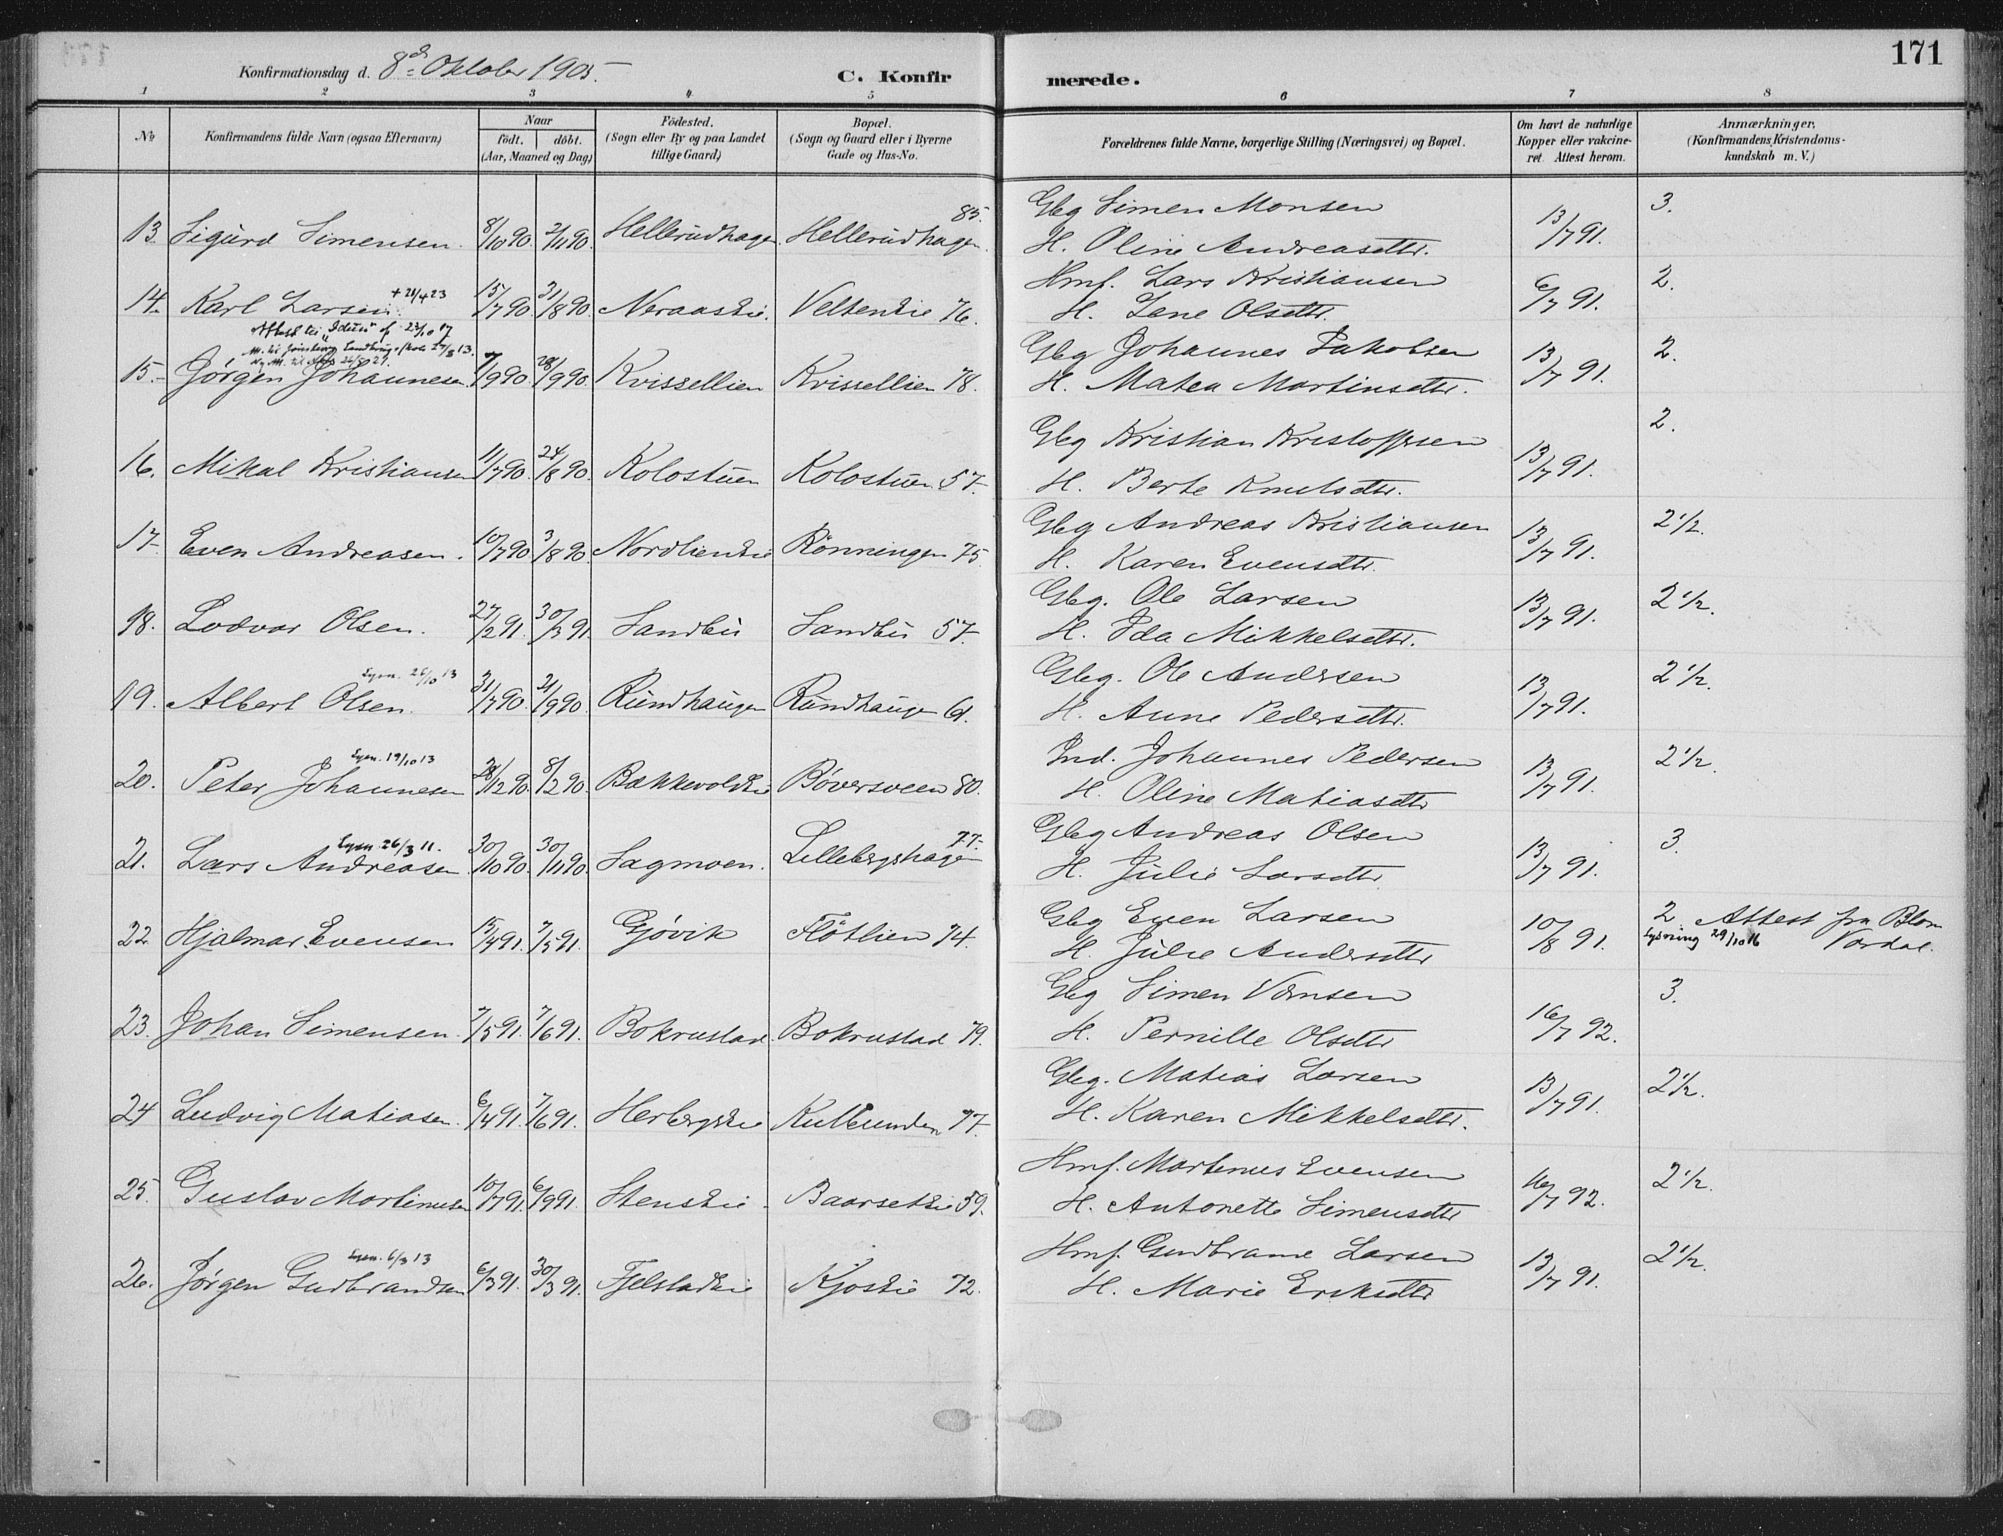 171
Konfirmationsdag d. 8de Oktober 1905.
C. Konfirmerede.
1 2 3 4 5 6 7 8
No
Konfirmandens fulde Navn (ogsaa Efternavn)
Naar
født. døbt.
(Aar, Maaned og Dag)
Fødested.
(Sogn eller By og paa Landet
tillige Gaard)
Bopæl.
(Sogn og Gaard eller i Byerne
Gade og Hus-No.
Forældrenes fulde Navne, borgerlige Stilling (Næringsvei) og Bopæl.
Om havt de naturlige
Kopper eller vakcine-
ret Attest herom.
Anmærkninger,
(Konfirmandens Kristendoms-
kundskab m. V.)
85.
Gbg Simen Monsen
13. Sigurd Simensen. 8/10 90. 2/11 90. Hellerudhagen Hellerudhagen. 13/7 91. 3.
H. Oline Andreasdtr.
+ 21/4 23
Hmf. Lars Kristiansen
14. Karl Larsen. 15/7 90. 31/8 90. Neraaseie. Velteneie 76. 6/7 91. 2.
H. Lene Olsdtr.
27/3 13.
Gbg Johannes Jakobsen
15. Jørgen Johannesen 7/9 90. 28/9 90. Kvissellien Kvissellien 78. 13/7 91. 2.
H. Matea Martinsdtr.
Gbg Kristian Kristoffersen
16. Mikal Kristiansen 11/7 90. 24/8 90. Kolostuen Kolostuen 57. 13/7 91. 2.
H. Berte Knutsdtr.
Gbg Andreas Kristiansen
17. Even Andreasen. 10/7 90. 3/8 90. Nordlieneie Rønningen 75. 13/7 91. 2 1/2.
H. Karen Evensdtr.
Gbg. Ole Larsen
18. Lodvar Olsen. 27/2 91. 30/3 91. Sandbu Sandbu 57. 13/7 91. 2 1/2.
H. Ida Mikkelsdtr.
Lysn. 26/10 13
Gbg. Ole Andersen
19. Albert Olsen. 31/7 90. 21/9 90. Rundhaugen Rundhaugen 61. 13/7 91. 2 1/2.
H. Anne Pedersdtr.
Lysn. 19/10 13
Ind. Johannes Pedersen
20. Peter Johannesen 28/12 90. 8/2 90. Bækkevoldeie Bøversveen 80. 13/7 91. 2 1/2.
H. Oline Matiasdtr
Lysn. 26/3 11. 77.
Gbg Andreas Olsen
21. Lars Andreasen 30/10 90. 30/11 90. Sagmoen. Lillebergshagen 13/7 91. 3.
H. Julie Larsdtr.
Gbg Even Larsen
22. Hjalmar Evensen 15/4 91. 7/5 91. Gjøvik Fløtlien 74. 10/8 91. 2 Attest fra
H. Julie Andersdtr Lysning 29/10 16 Vardal.
Gbg Simen
23. Johan Simensen. 7/5 91. 7/6 91. Bokrustad. Bokrustad 79. 16/7 92. 3.
H. Pernille Olsdtr
Gbg. Matias Larsen
24 Ludvig Matiasen. 6/4 91. 7/6 91. Herbergseie Kulbunden 77. 13/7 91. 2 1/2.
H. Karen Mikkelsdtr.
Hmf. Martinus Evensen
25. Gustav Martinusen 10/7 91. 6/9 91. Stenseie. Baarseteie 59. 16/7 92. 2 1/2.
H. Antonette Simensdtr
Lysn. 6/3 13
Hmf. Gudbrand Larsen
26. Jørgen Gudbrandsen 6/3 91. 30/3 91. Fjelstadeie Kjoseie 72. 13/7 91. 2 1/2.
H. Marie Eriksdtr